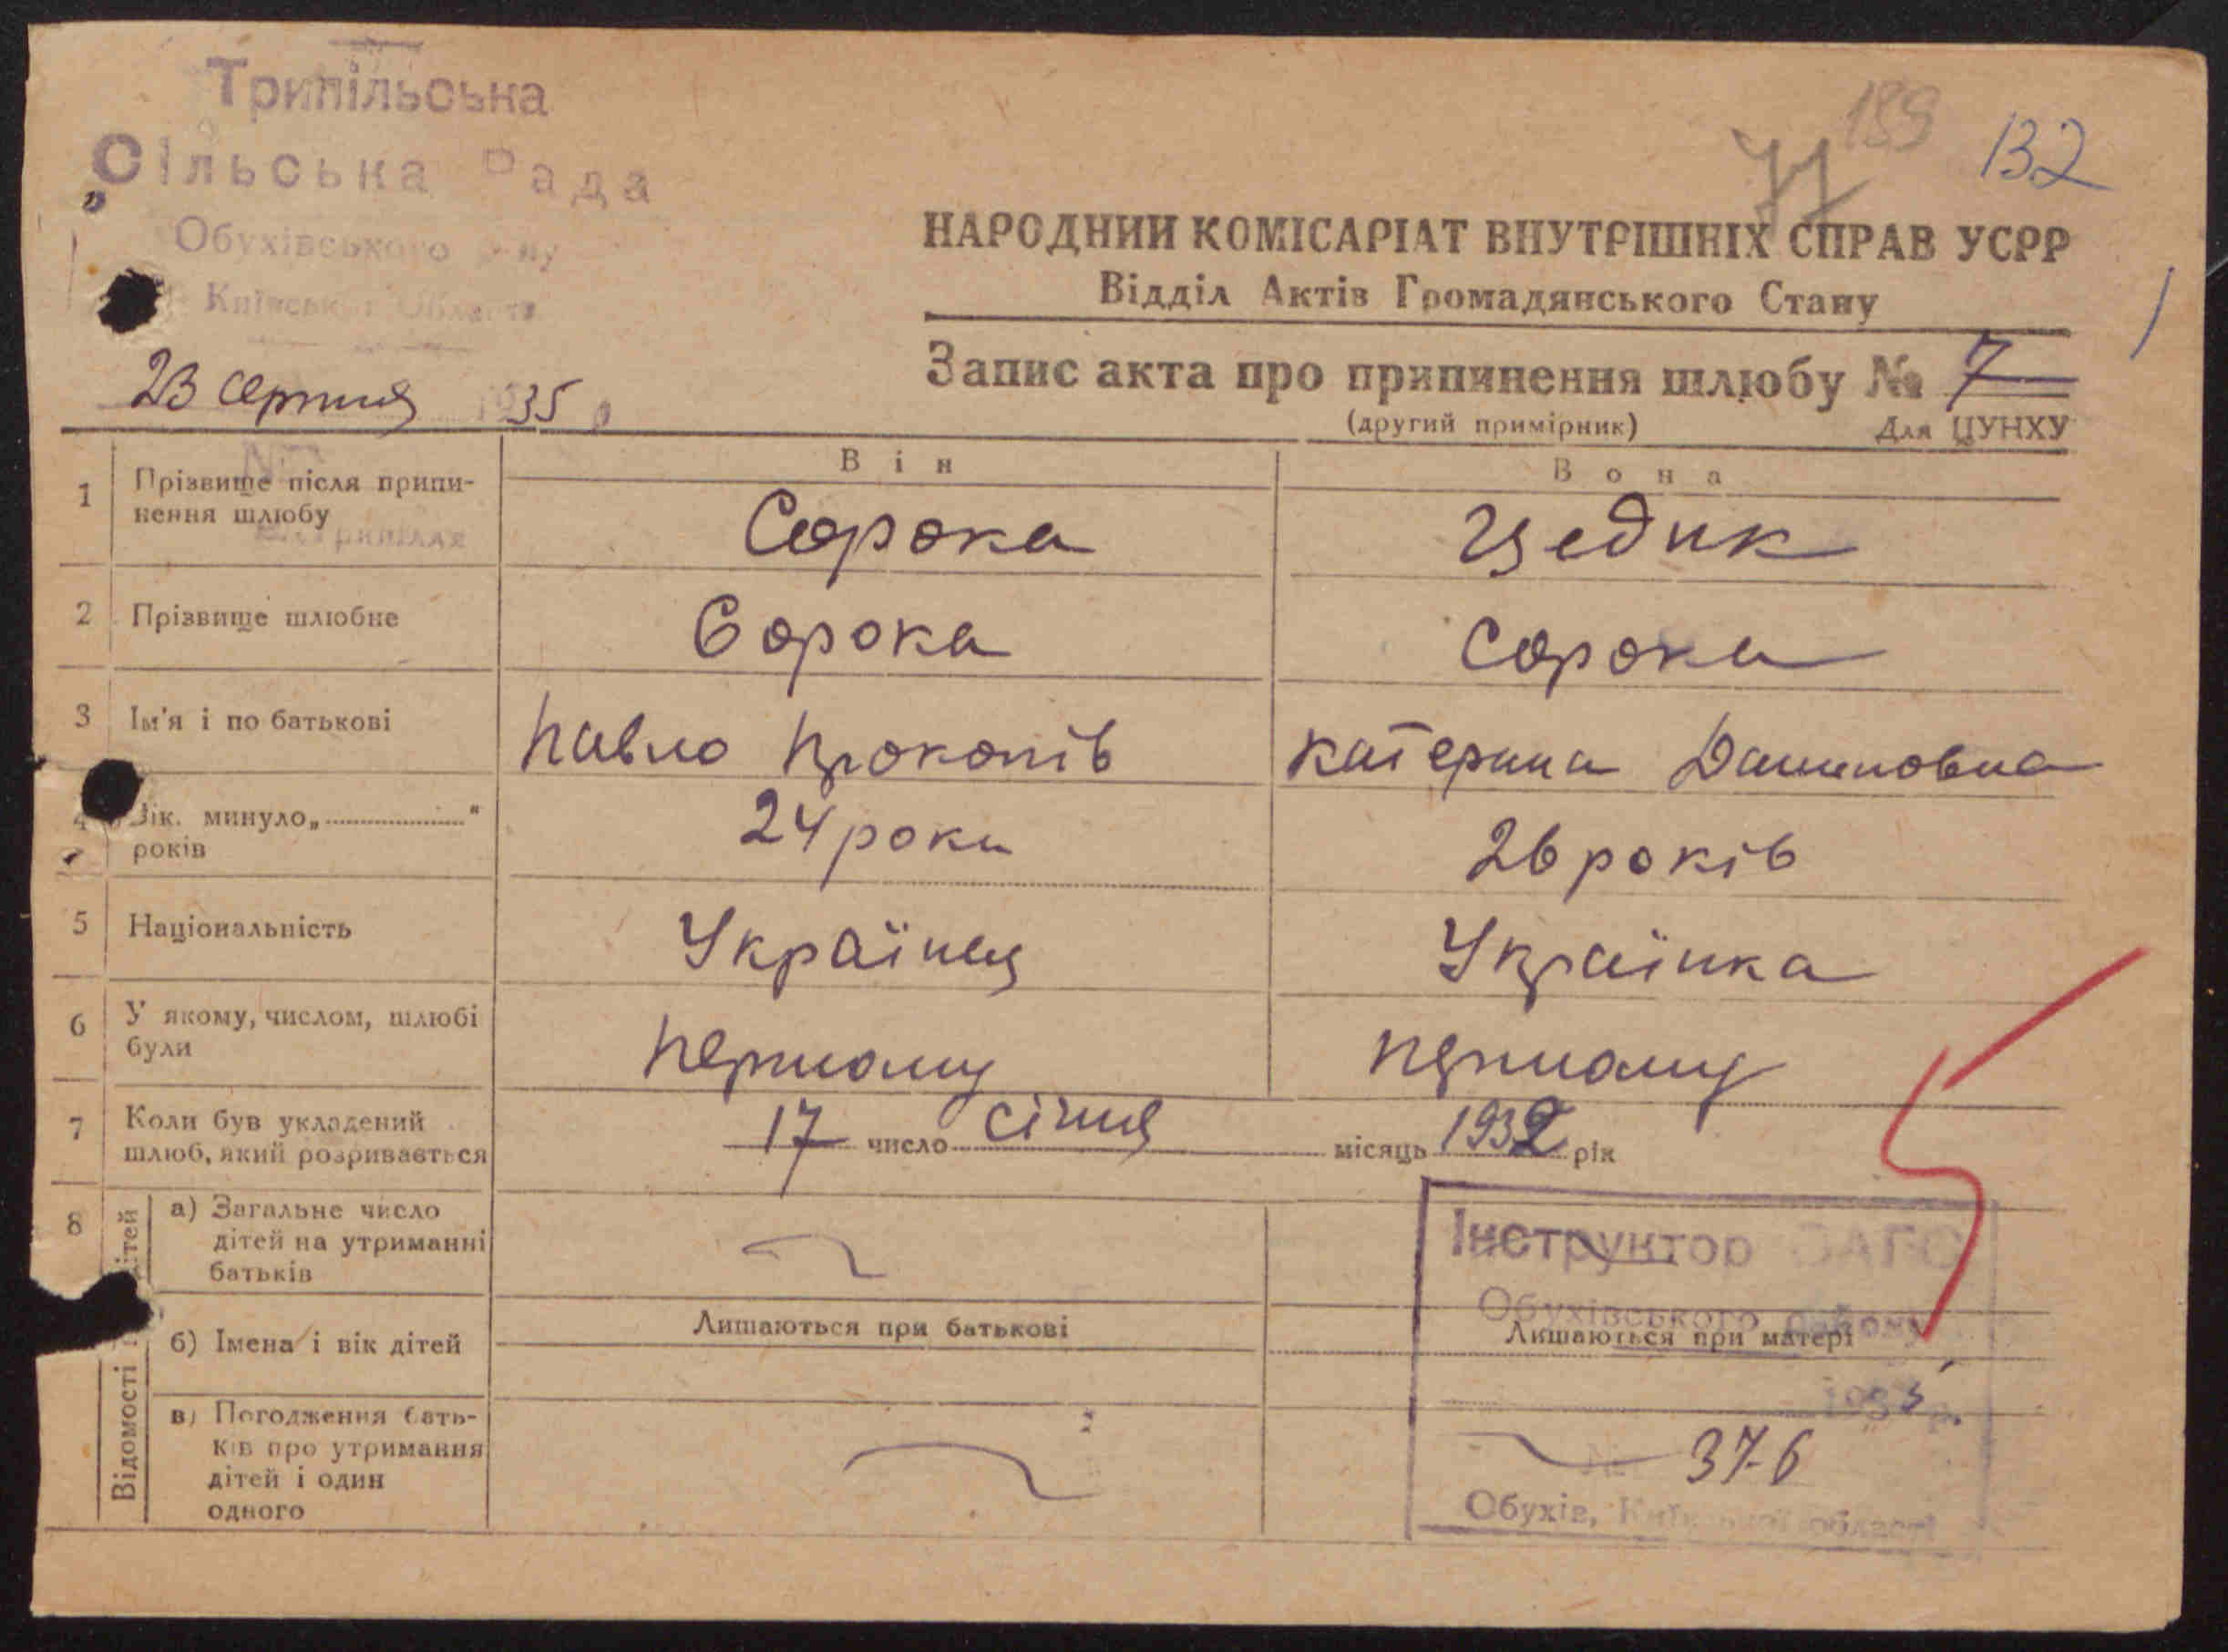 Трипільська
Сільська Рада
Обухівського р-ну
Київської Області
23 серпня 1935 р
189
77
132
НАРОДНИЙ КОМІСАРІАТ ВНУТРІШНІХ СПРАВ УСРР
Відділ Актів Громадянського Стану
Запис акта про припинення шлюбу № 7
(другий примірник) Для ЦУНХУ
Він Вона
1 Прізвище після припи-
нення шлюбу Сорока Цедик
2 Прізвище шлюбне Сорока Сорока
3 Ім'я і по батькові Павло Прокопів Катерина Даниловна
4 Вік. минуло „ “
років 24 роки 26 років
5 Національність Українец Українка
6 У якому, числом, шлюбі
були першому першому
7 Коли був укладений
шлюб, який розривається 17 число січня місяць 1932 рік
8 Відомості дітей
а) Загальне число
дітей на утриманні
батьків
Інструктор ЗАГС
Обухівського району
б) Імена і вік дітей Лишаються при батькові Лишаються при матері
1935 р.
в) Погодження бать-
ків про утримання
дітей і один
одного
№ 37-6
Обухів, Київської області